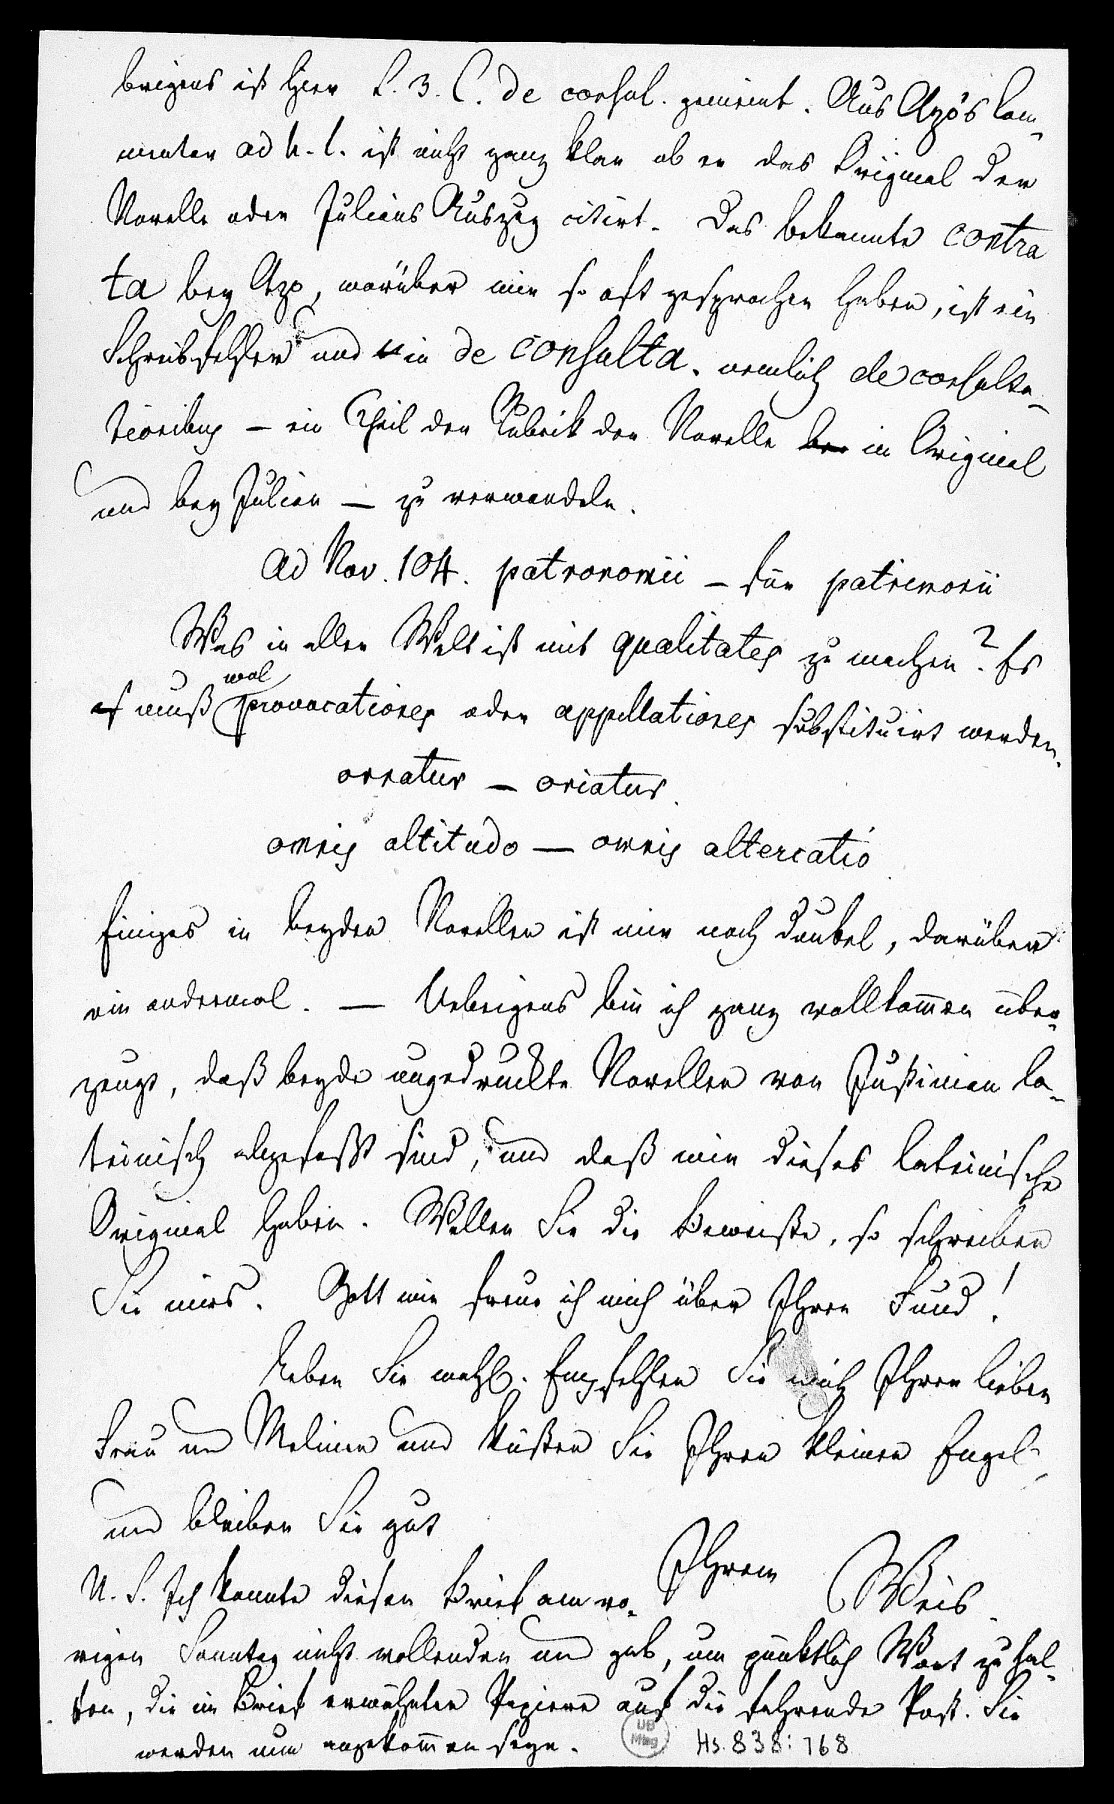 brigens ist hier L. 3. C. de consul. gemeint. Aus Azo's Com-
mentar ad h. l. ist nicht ganz klar ob er das Original der
Novelle oder Julians Auszug citirt. Das bekannte contra
ta bey Azo, worüber wir so oft gesprochen haben, ist ein
Schreibfehler und in de consulta. nemlich de consulta-
tionibus – ein Theil der Rubrik der Novelle im Original
und bey Julian – zu verwandeln.
ad Nov. 104. patronomii – für patrimonii
Was in aller Welt ist mit qualitates zu machen? Es
muß wol provocationes oder appellationes substituirt werden.
ornatur – oriatur.
omnis altitudo – omnis altercatio
Einiges in beyden Novellen ist mir noch dunkel, darüber
ein andermal. – Uebrigens bin ich ganz vollkommen über-
zeugt, daß beyde ungedruckte Novellen von Justinian la-
teinisch abgefaßt sind, und daß wir dieses lateinische
Original haben. Wollen Sie die Beweise, so schreiben
Sie mirs. Gott wie freue ich mich über Ihren Fund!
Leben Sie wohl. Empfehlen Sie mich Ihrer lieben
Frau und Meline und küßen Sie Ihren kleinen Engel
und bleiben Sie gut
Ihrem Weis.
N. S. Ich konnte diesen Brief am vo-
rigen Sonntag nicht vollenden und gab, um pünktlich Wort zu hal-
ten, die im Brief erwähnten Papiere auf die fahrende Post. Sie
werden nun angekommen seyn.
UB
Mbg
Hs. 838: 168